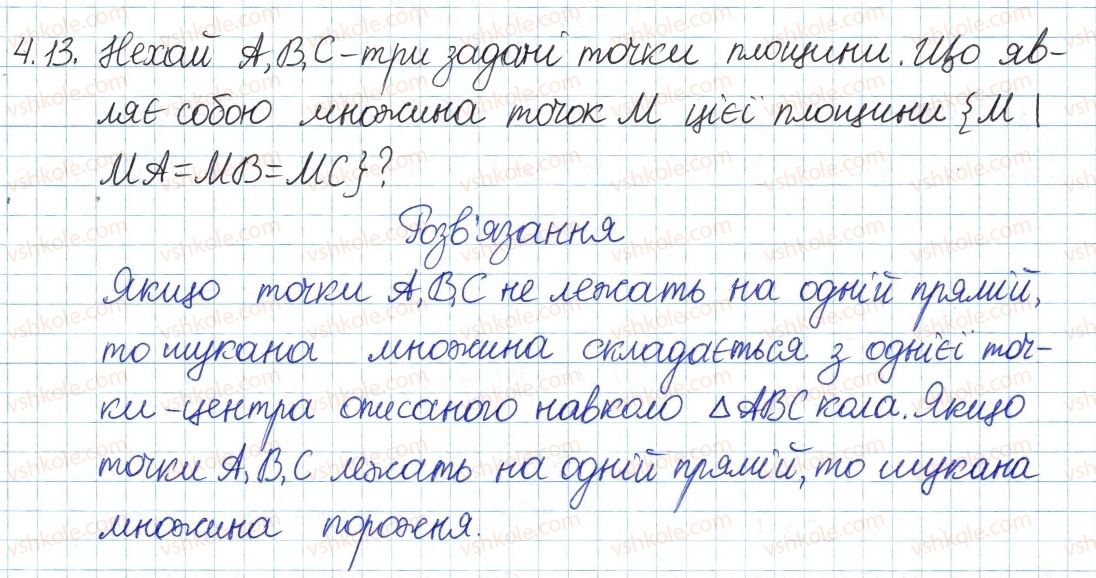 4.13. Нехай A,B,C-три задані точки площини. Що яв-
ляє собою множина точок M цієї площини {M |
MA=MB=MC}?
Розв'язання
Якщо точки A,B,C не лежать на одній прямій,
то шукана множина складається з однієї точ-
ки-центра описаного навколо △ABC кола. Якщо
точки A,B,C лежать на одній прямій, то шукана
множина порожня.